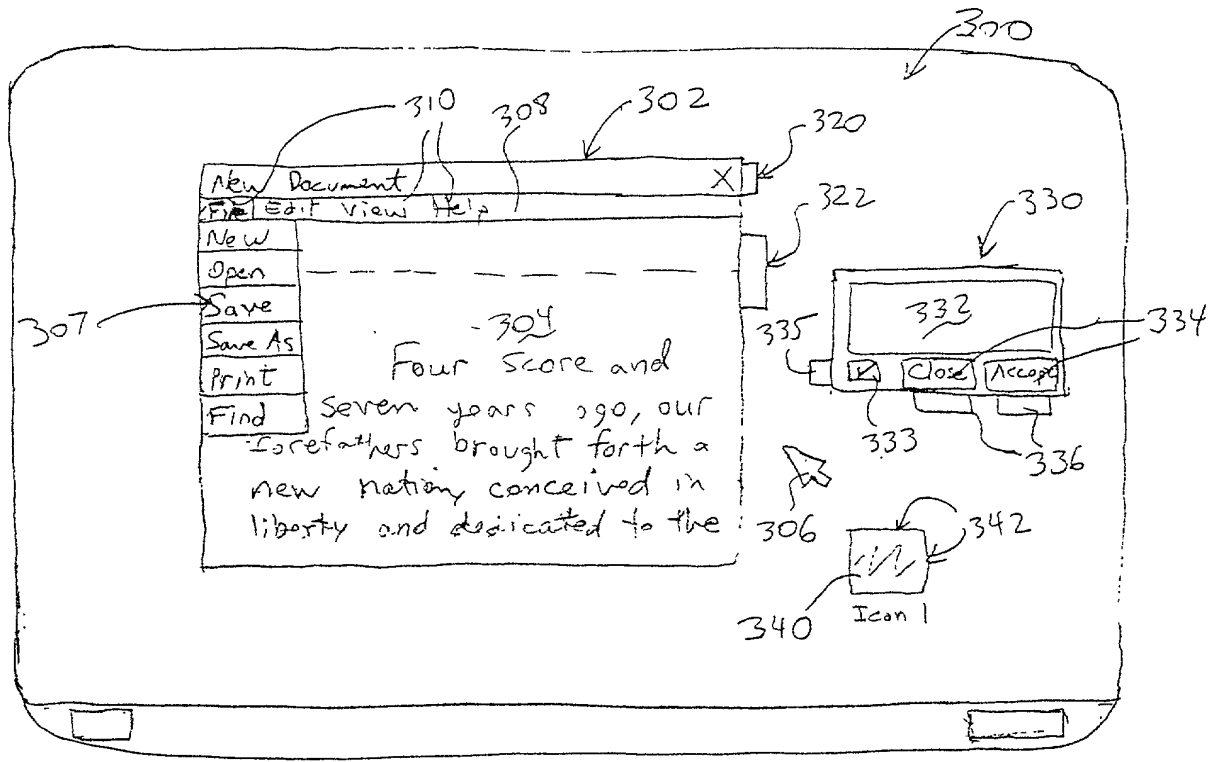 300
310 308 302
320
New Document X
File Edit View Help
322
330
New
Open
Save
Save As
Print
Find
307
304
Four Score and
seven years ago, our
forefathers brought forth a
new nation, conceived in
liberty and dedicated to the
332
334
335
Close Accept
333
336
306
342
340
Icon 1